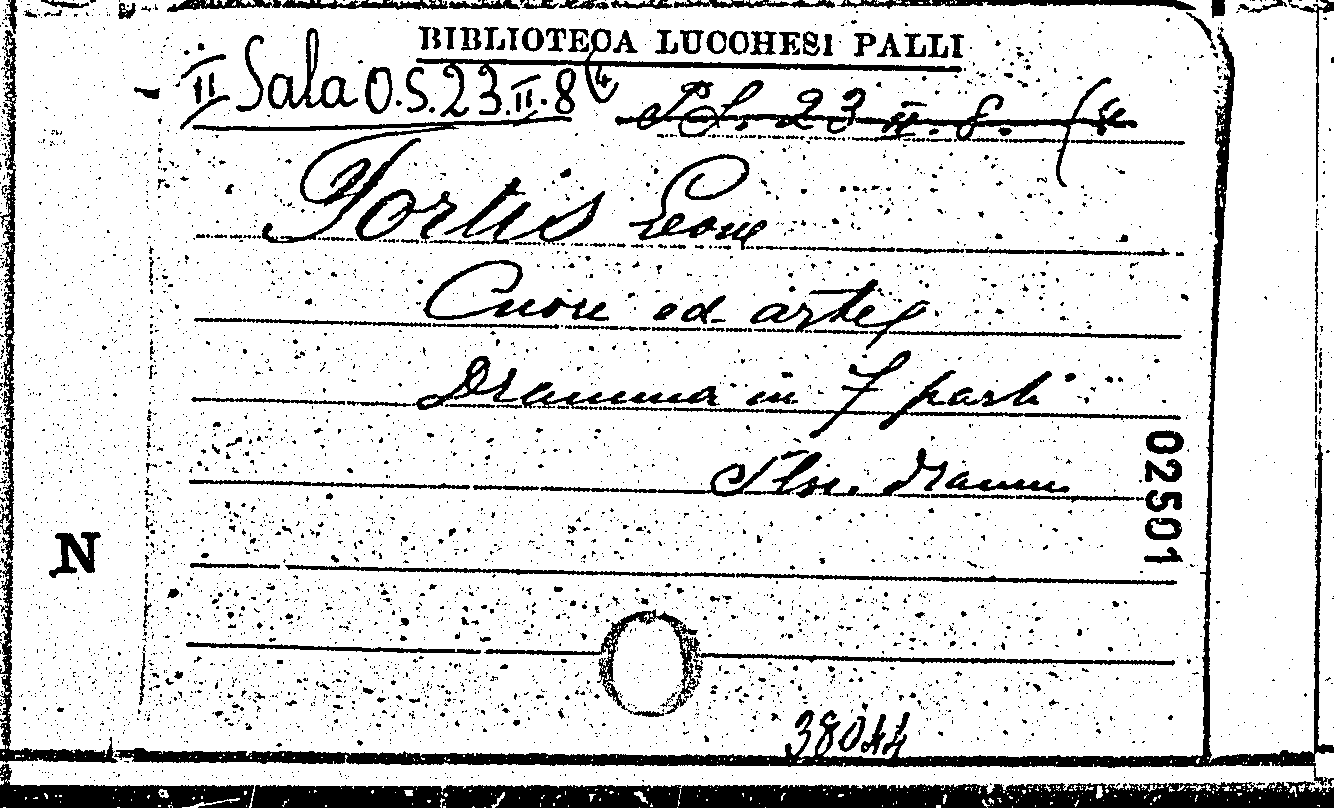 BIBLIOTECA LUCCHESI PALLI
II Sala O.S. 23.II.8(4
23 II. 8. (4
Fortis Leone
Cuore ed arte
Dramma in 7 parti
02501
N
38044